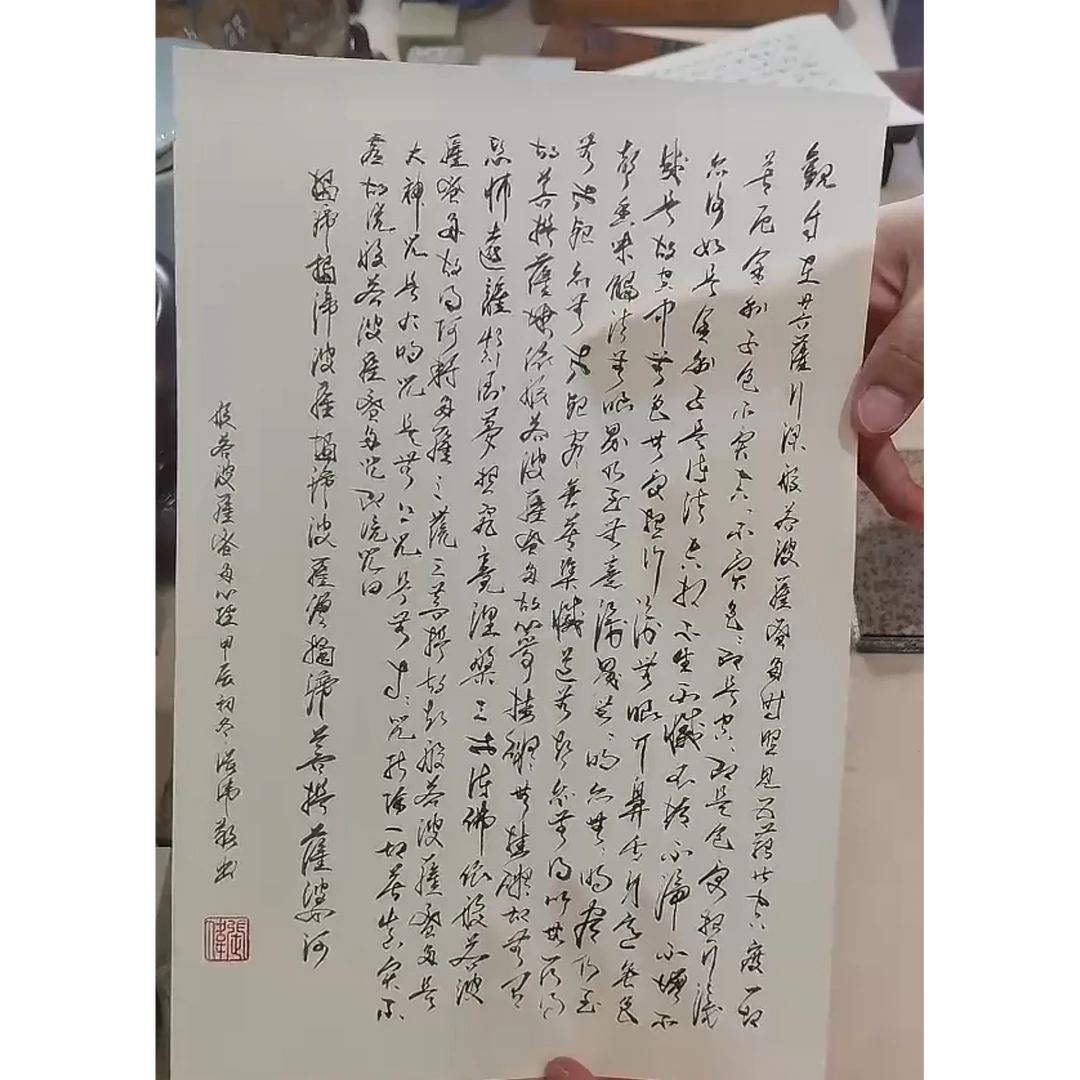 觀自在菩薩行深般若波羅蜜多時照見五蘊皆空度一切
苦厄舍利子色不異空空不異色色即是空空即是色受想行識
亦復如是舍利子是諸法空相不生不滅不垢不淨不增不
減是故空中無色無受想行識無眼耳鼻舌身意無色
聲香味觸法無眼界乃至無意識界無無明亦無無明盡乃至
無老死亦無老死盡無苦集滅道無智亦無得以無所得
故菩提薩埵依般若波羅蜜多故心無罣礙無罣礙故無有
恐怖遠離顛倒夢想究竟涅槃三世諸佛依般若波
羅蜜多故得阿耨多羅三藐三菩提故知般若波羅蜜多是
大神咒是大明咒是無上咒是無等等咒能除一切苦真實不
虛故說般若波羅蜜多咒即說咒曰
揭諦揭諦波羅揭諦波羅僧揭諦菩提薩婆訶
般若波羅蜜多心經甲辰初冬張偉敬書
張偉